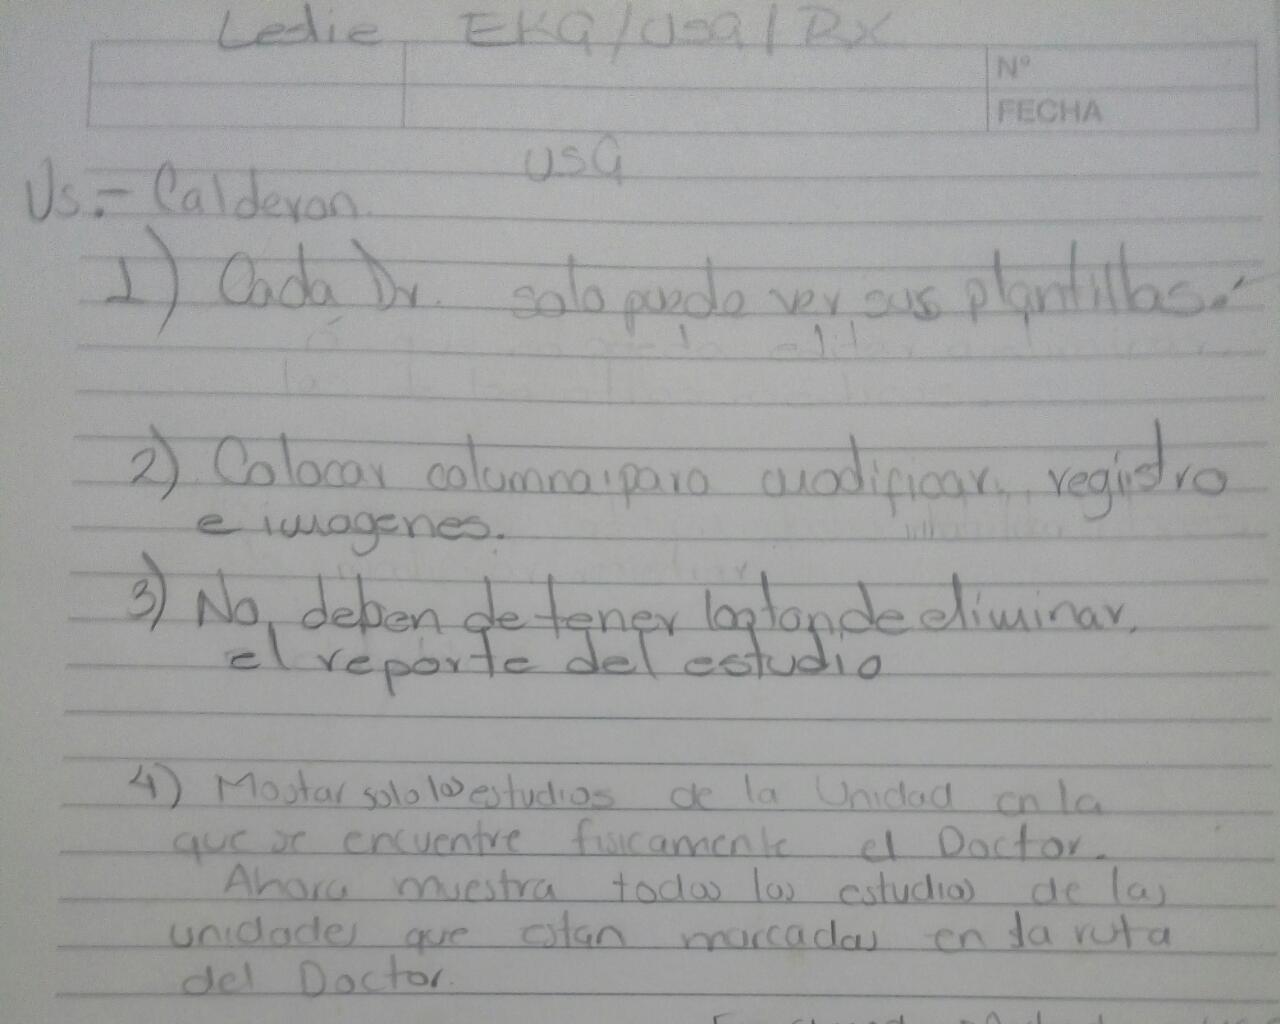 Ledie EKG/USG/RX
Nº
FECHA
USG
Us.- Calderon.
1) Cada Dr. solo puede ver sus plantillas.
2) Colocar columna para modificar registro
e imagenes.
3) No deben de tener boton de eliminar.
el reporte del estudio
4) Mostar solo los estudios de la Unidad en la
que se encuentre fisicamente el Doctor.
Ahora muestra todos los estudios de las
unidades que estan marcadas en la ruta
del Doctor.